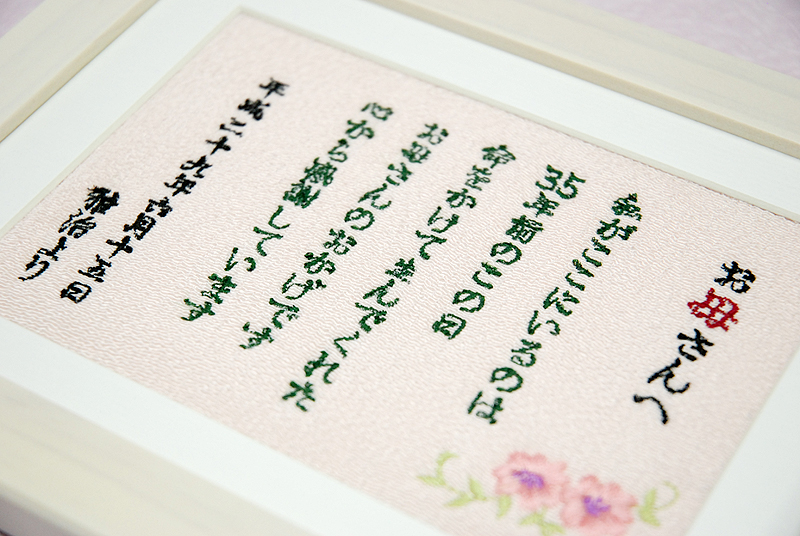 お母さんへ
俺がここにいるのは
35年前のこの日
命をかけて産んでくれた
お母さんのおかげです
心から感謝しています
平成二十九年六月十五日
雅治より